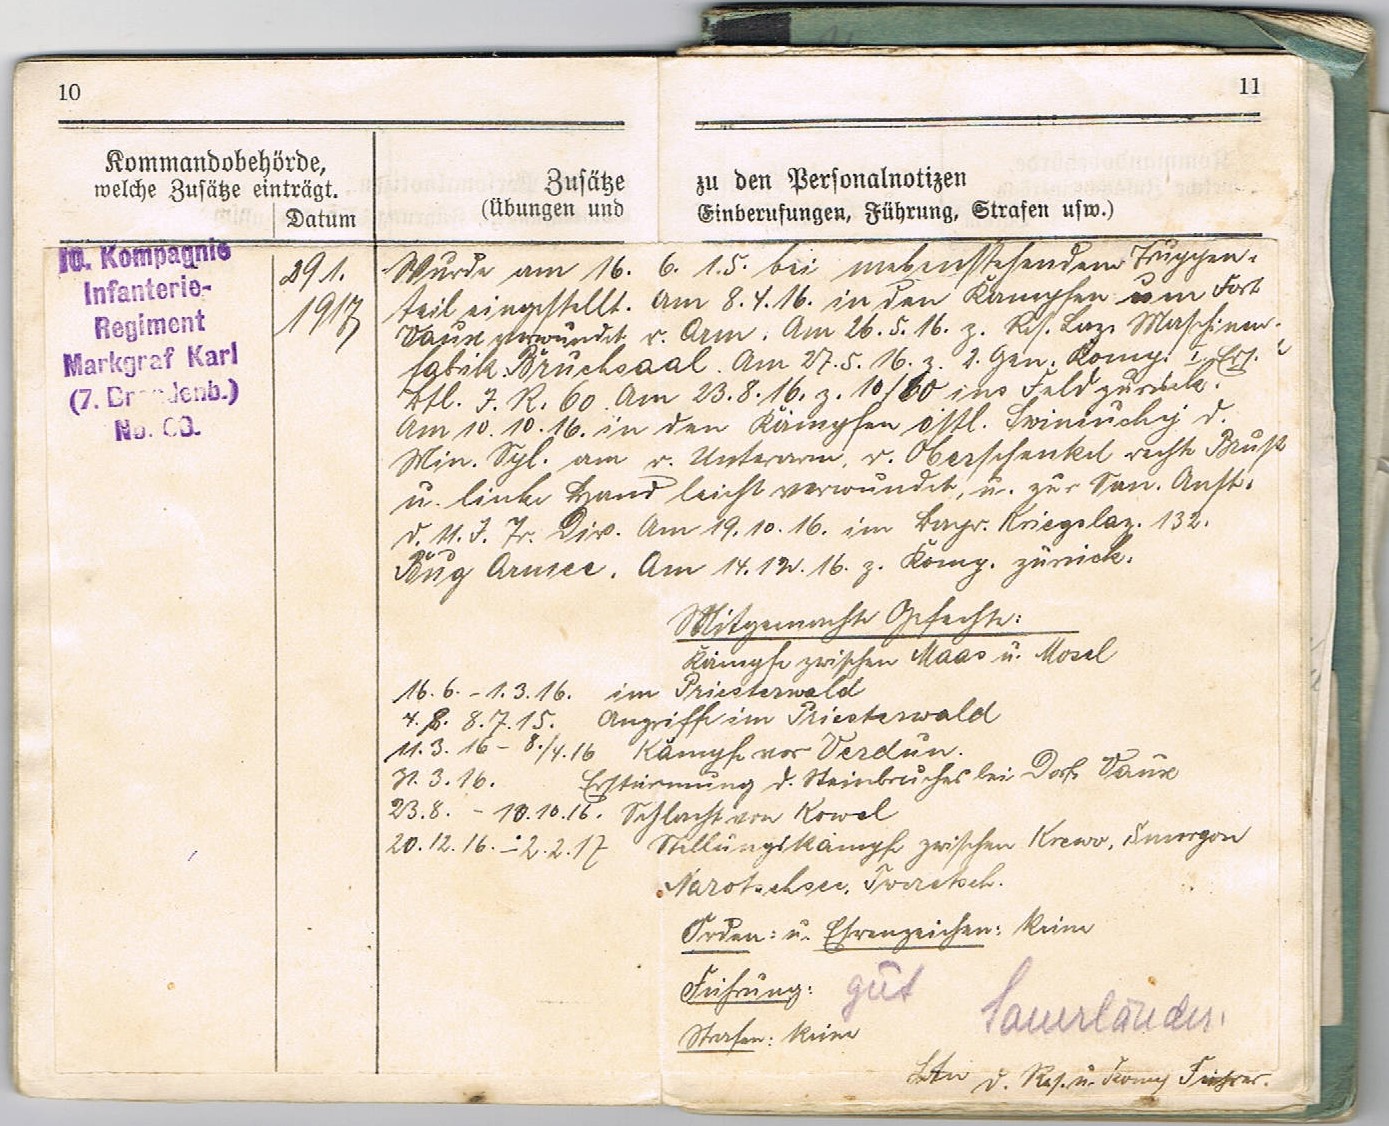 10
11
Kommandobehörde,
welche Zusätze einträgt.
Datum
Zusätze zu den Personalnotizen
(Übungen und Einberufungen, Führung, Strafen usw.)
10. Kompagnie
Infanterie-
Regiment
Markgraf Karl
(7. Brandenb.)
No. 60.
29 1.
1917
Wurde am 16. 6. 15. bei nebenstehendem Truppen-
teil eingestellt. Am 8.4.16. in den Kämpfen um Fort
Vaux verwundet r. Arm. Am 26.5.16. z. Res. Laz. Maschinen-
fabrik Bruchsaal. Am 27.5.16. z. 2. Gen. Komp. I. Ers.
Btl. I. R. 60. Am 23.8.16. z. 10/60 ins Feld zurück.
Am 10.10.16. in den Kämpfen östl. Swiniuchy d.
Min. Spl. am r. Unterarm, r. Oberschenkel rechte Brust
u. linke Hand leicht verwundet, u. zur San. Anst.
d. 11. I. Tr. Div. Am 19.10.16. im Bayr. Kriegslaz. 132.
Bug Armee. Am 14.12.16. z. Komp. zurück.
Mitgemachte Gefechte:
Kämpfe zwischen Maas u. Mosel
16.6. - 1.3.16. im Priesterwald
4. 8. 8.7.15. Angriffe im Priesterwald
11.3.16 - 8./4.16 Kämpfe vor Verdun.
31.3.16. Erstürmung d. Steinbruches bei Dorf Vaux
23.8. - 10.10.16. Schlacht von Kowel
20.12.16. - 2.2.17 Stellungskämpfe zwischen Krewo, Smorgon
Narotschsee, Tweretsch.
Orden: u. Ehrenzeichen: keine
Führung: gut
Sauerländer.
Strafen: keine
Ltn d. Res. u. Komp Führer.